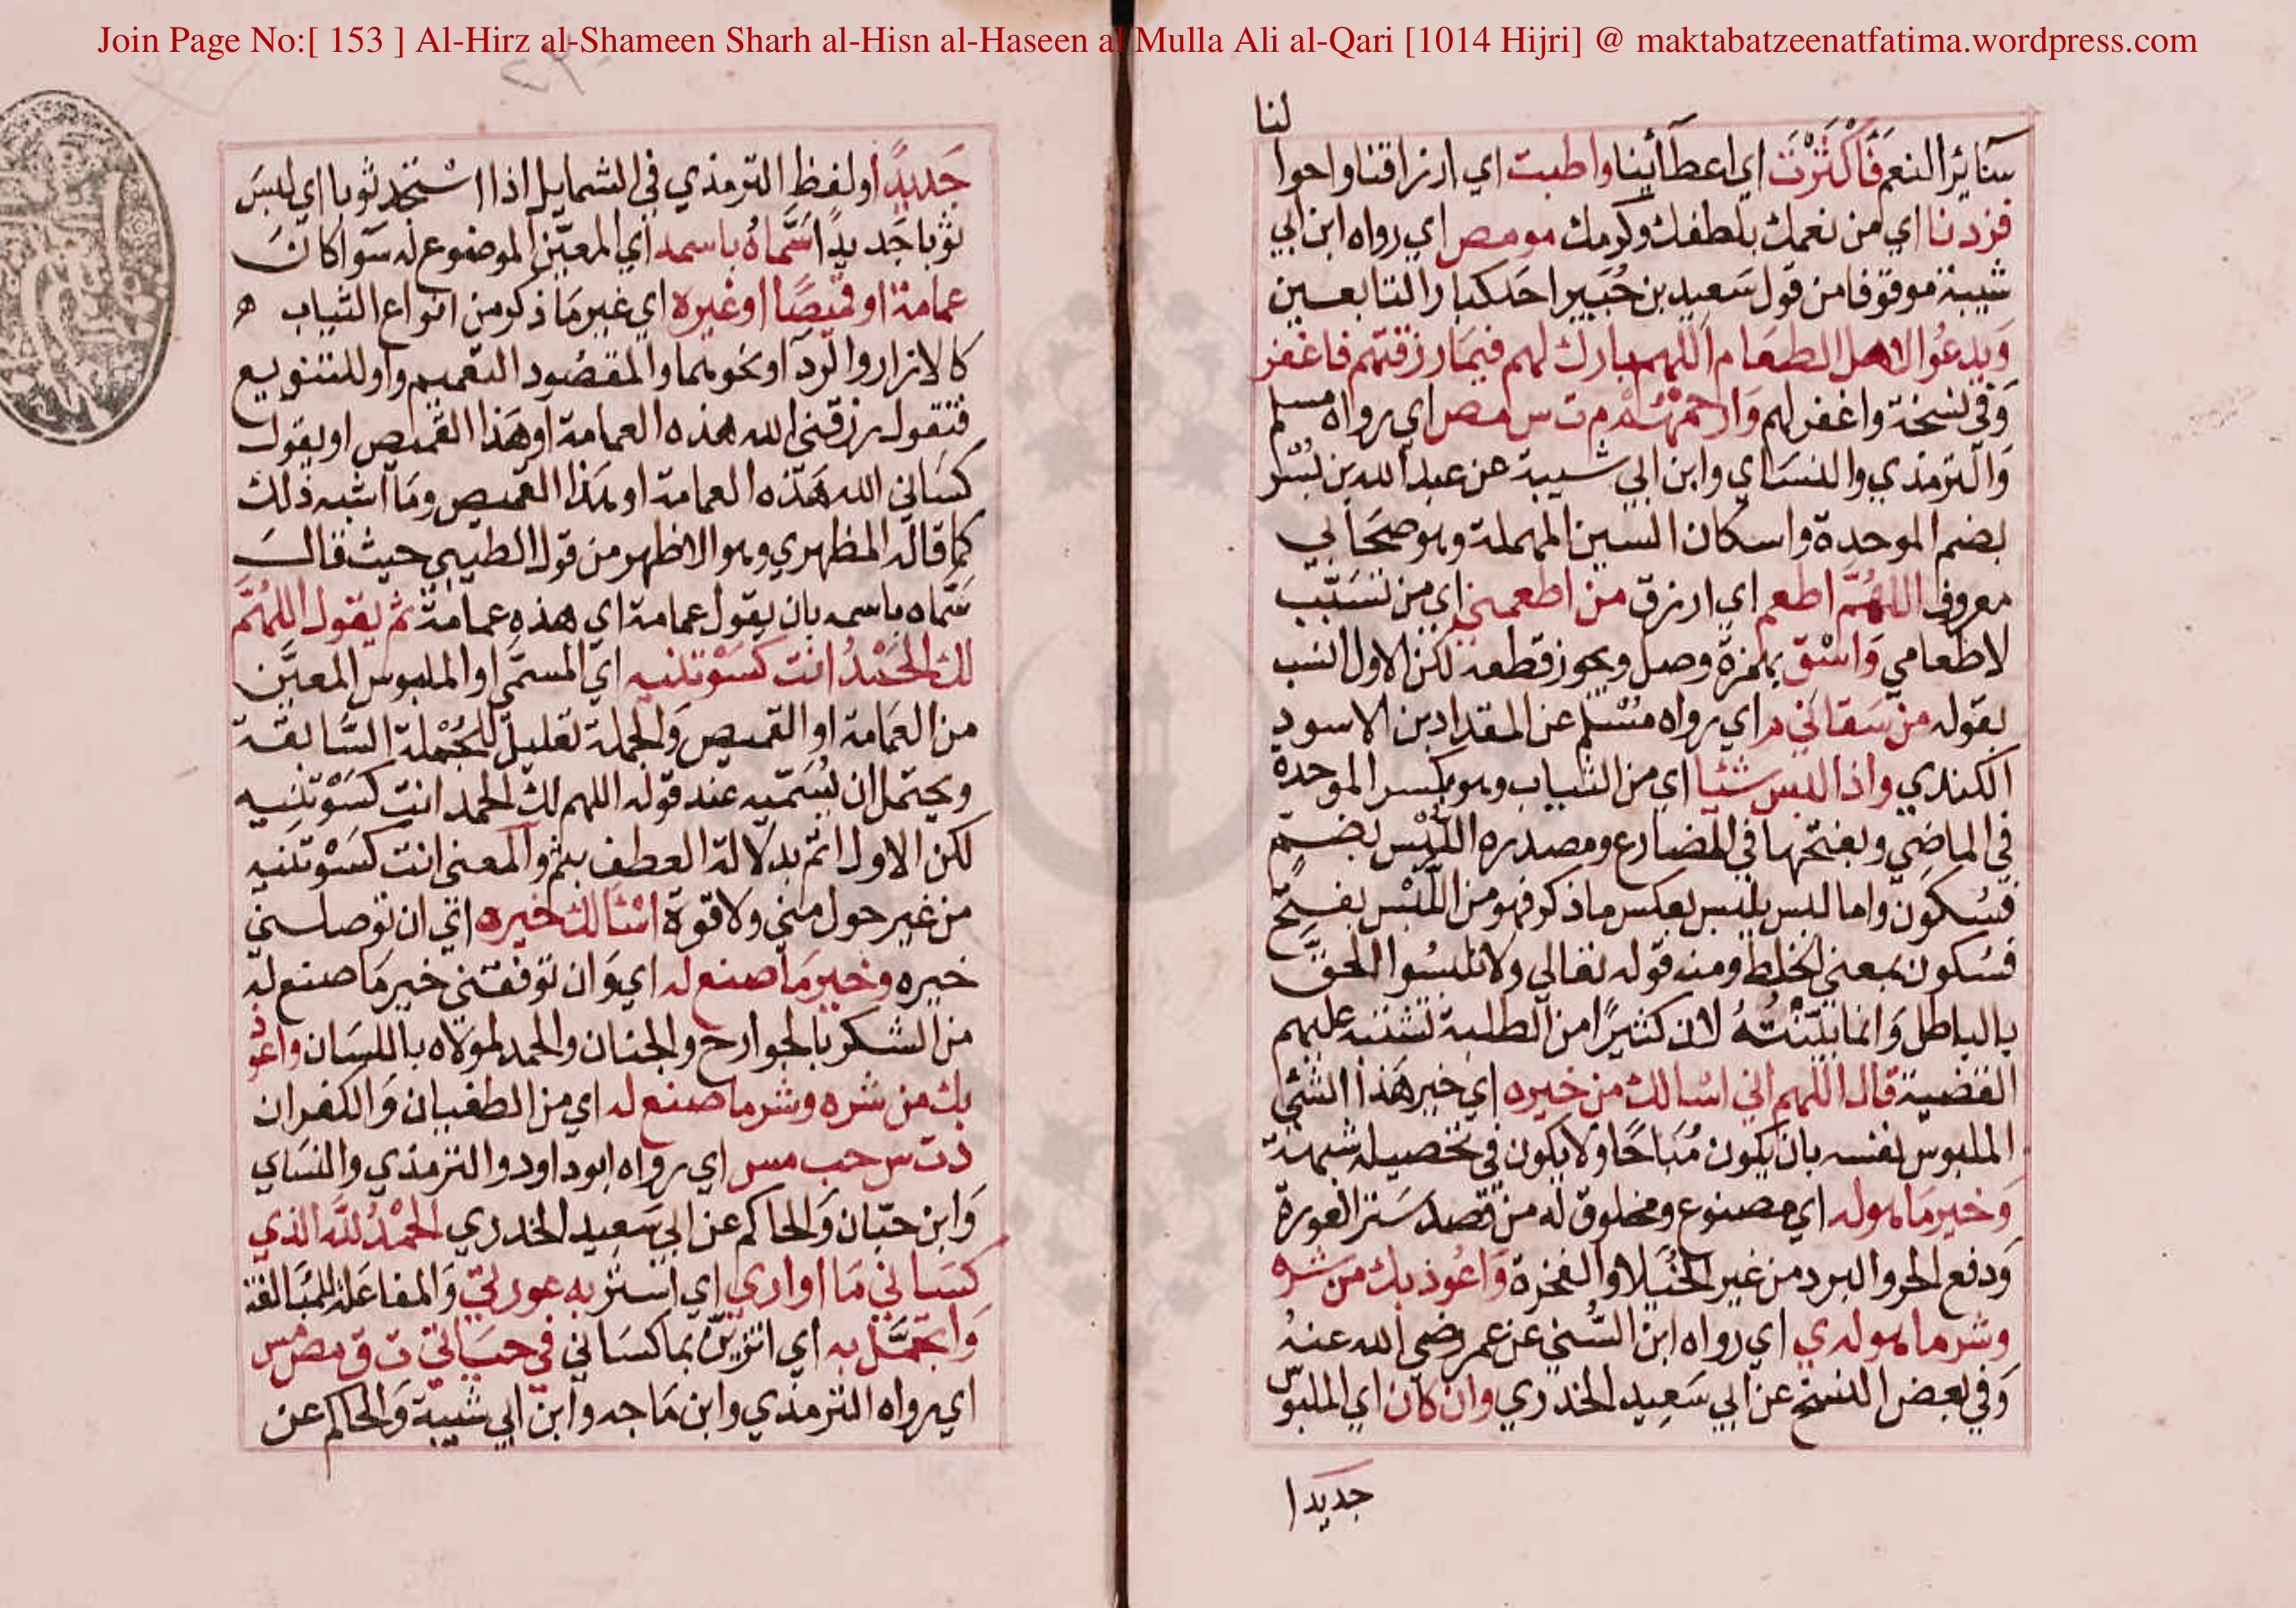 Join Page No:[ 153 ] Al-Hirz al-Shameen Sharh al-Hisn al-Haseen al Mulla Ali al-Qari [1014 Hijri] @ maktabatzeenatfatima.wordpress.com
لنا
سآئر النعم فَأَكْثَرْتَ اي اعطآئنا واطبت اي ارزاقنا واحوا
فزدنا اي من نعمك بلطفك وكرمك مو مص اي رواه ابن ابي
شيبة موقوفا من قول سَعيد بن جُبَير احد كبار التابعين
وَيدعُوا لاهل الطعَام اللهم بارك لهم فيمَا رزقتهم فاغفر
وَفي نسخة واغفر لهم وَارحمْهُمْ م ت س مص اي رواه مسلم
وَالترمذي والنسَاي وابن ابي شيبة عن عبد الله بن بُسْر
بضم الموحدة واسكان السين المهملة وهو صحَابي
معروف اللهُمَّ اطعم اي ارزق من اطعمني اي من تسَبّب
لاطعامي وَاسْق بهمزة وصل ويجوز قطعه لكن الاول انسب
بقوله من سَقاني م اي رواه مُسْلم عن المقداد بن الاسود
الكندي واذا لبس شيْا اي من الثياب وهو بكسر الموحدة
في الماضِي وبفتحها في المضارع ومصدره اللُّبْس بضمّ
فسُكون واما لبس يلبس بعكس ما ذكر فهو من اللَّبْس بفتح
فسُكون بمعنى الخلط ومنه قوله تعالي ولا تلبسُوا الحقّ
بالباطل وَانما بيّنْتُهُ لان كثيرًا من الطلبة تشتبه عليهم
القضية قال اللهم اني اسالك من خيره اي خير هَذا الشي
الملبوس نفسه بان يكون مُبَاحًا ولا يكون في تحصيله شبهة
وَخير مَا هو له اي مصنوع ومخلوق له من قصد سَتر العورة
وَدفع الحر والبرد من غير الخُيَلا والفخرة وَاعُوذ بك من شره
وشر ما هو له ي اي رواه ابن السُّني عن عمر رضي الله عنهُ
وَفي بعض النسخ عن ابي سَعِيد الخدري وان كان اي الملبوس
جديدا
جَديدًا ولفظ الترمذي في الشمايل اذا اسْتجد ثوبا اي لبسَ
ثوبا جَديدًا سَمَّاهُ باسمه اي المعيّن الموضوع له سَوآ كانَ
عمامة او قميصًا او غيره اي غير مَا ذكر من انواع الثياب ه
كالازار والردآ ونحوهما والمقصُود التعميم واو للتنويع
فتقول رزقني الله هذه العمامة او هَذا القميص او يقول
كسَاني الله هَذه العمامة او هذا القميص ومَا اشبه ذلك
كما قاله المظهري وهو الاظهر من قول الطيبي حيث قالَ
سَمّاه باسمه بان يقول عمامة اي هذه عمامة ثم يقول اللهُمَّ
لك الحَمْدُ انت كسَوْتنيه اي المسمّي او الملبوس المعيَّن
من العمَامة او القميص وَالجملة تعليل للجُمْلة السَّابقة
ويحتمل ان يُسَمّيه عند قوله اللهم لك الحمد انت كسَوْتنيه
لكن الاول اتم بدلالة العطف بثم والمعنى انت كسَوْتَنيه
من غير حول مني ولا قوة اسْئالك خيره اي ان توصلني
خيره وخير مَا صنع له اي وَان توفقني خير مَا صنع له
من الشكر بالجوارح والجنان والحمد لمولاه باللسَان واعوذ
بك من شره وشر ما صنع له اي من الطغيان وَالكفران
د ت س حب مس اي رواه ابو داود والترمذي والنسَاي
وَابن حبّان وَالحاكم عن ابي سَعِيد الخدري الحمْدُ للَّه الذي
كسَاني مَا اواري اي استر به عورتي وَالمفاعَلة للمبَالغة
وَاتجمَّل به اي اتزيّن بما كسَاني في حيَاتي ت ق مص مس
اي رواه الترمذي وابن مَاجه وابن ابي شيبة وَالحاكم عن